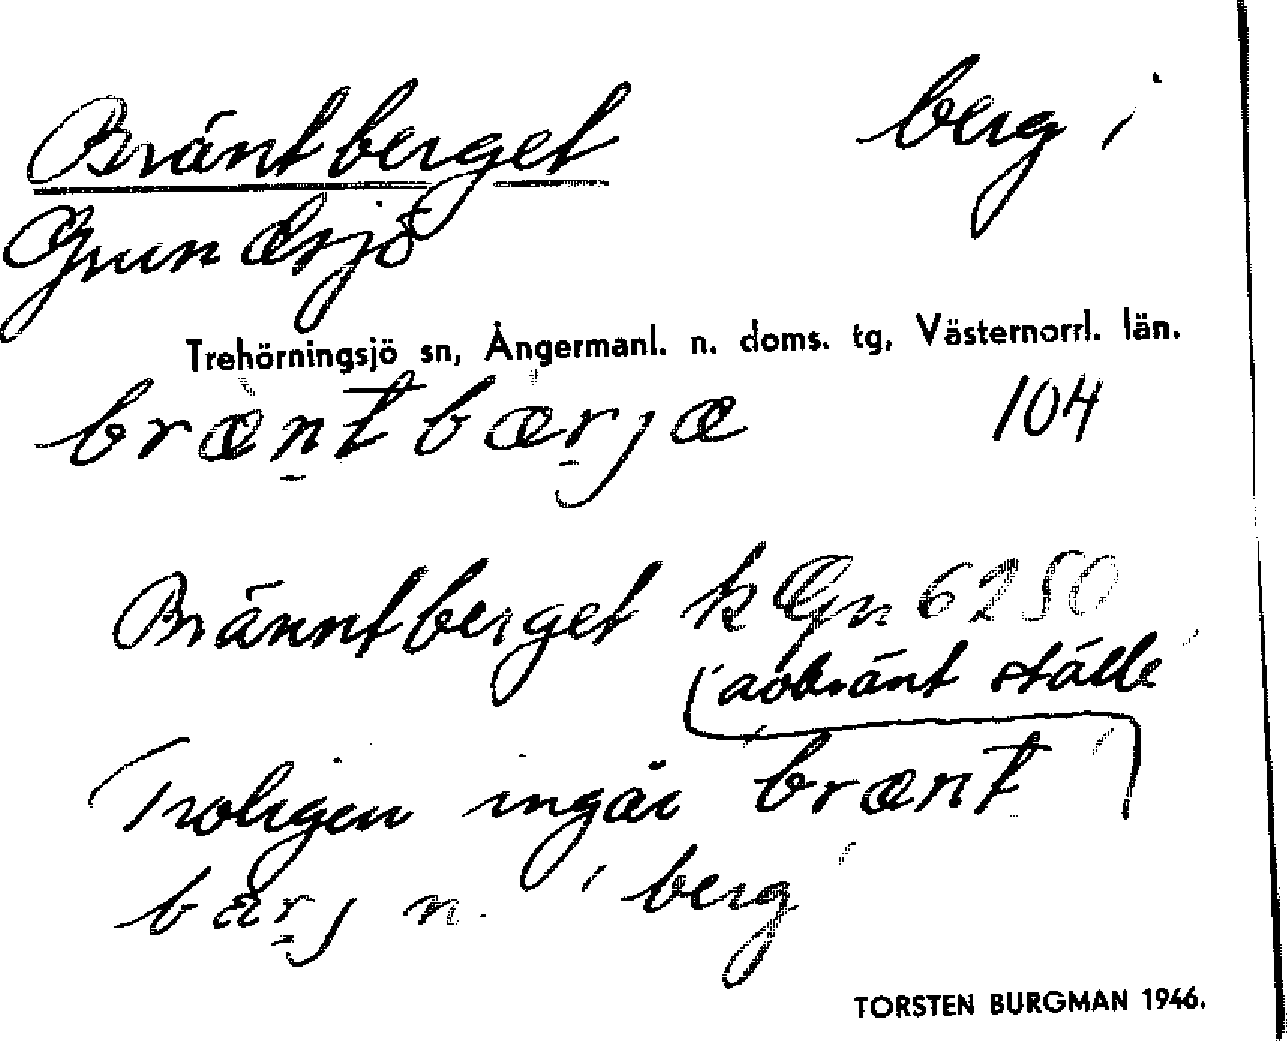 Bräntberget berg i
Grundsjö
Trehörningsjö sn, Ångermanl. n. doms. tg, Västernorrl. län.
bræ̀ntbær̀jæ 104
Bränntberget k Gn 6250
(avbränt ställe
Troligen ingår brænt )
bærj n. 'berg'
TORSTEN BURGMAN 1946.